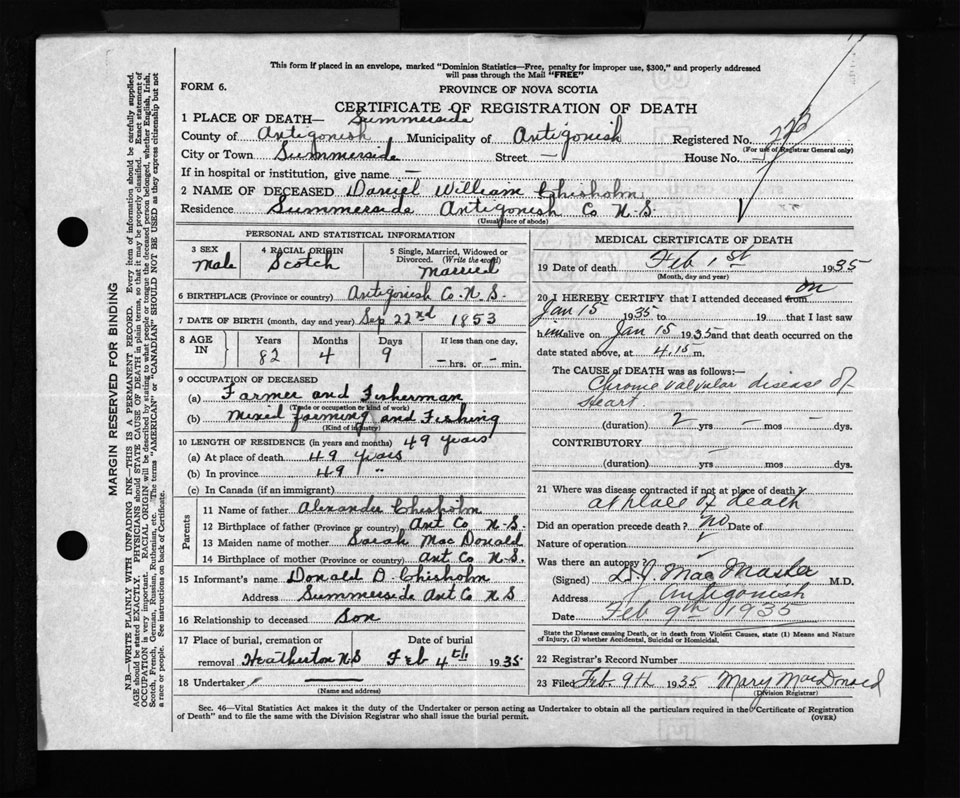 This form if placed in an envelope, marked "Dominion Statistics—Free, penalty for improper use, $300," and properly addressed
will pass through the Mail "FREE"
FORM 6.
PROVINCE OF NOVA SCOTIA
CERTIFICATE OF REGISTRATION OF DEATH
1 PLACE OF DEATH— Summerside
County of Antigonish Municipality of Antigonish Registered No. 223
(For use of Registrar General only)
City or Town Summerside Street — House No.
If in hospital or institution, give name —
2 NAME OF DECEASED Daniel William Chisholm
Residence Summerside Antigonish Co N.S.
(Usual place of abode)
PERSONAL AND STATISTICAL INFORMATION
3 SEX Male
4 RACIAL ORIGIN Scotch
5 Single, Married, Widowed or Divorced. (Write the word) Married
6 BIRTHPLACE (Province or country) Antigonish Co. N.S.
7 DATE OF BIRTH (month, day and year) Sep 22nd 1853
8 AGE IN Years Months Days If less than one day,
82 4 9 —hrs. or —min.
9 OCCUPATION OF DECEASED
(a) Farmer and Fisherman
(Trade or occupation or kind of work)
(b) mixed farming and Fishing
(Kind of industry)
10 LENGTH OF RESIDENCE (in years and months) 49 years
(a) At place of death 49 years
(b) In province 49 "
(c) In Canada (if an immigrant)
Parents
11 Name of father Alexander Chisholm
12 Birthplace of father (Province or country) Ant Co N.S.
13 Maiden name of mother Sarah MacDonald
14 Birthplace of mother (Province or country) Ant Co N.S.
15 Informant's name Donald D. Chisholm
Address Summerside Ant Co N S
16 Relationship to deceased Son
17 Place of burial, cremation or removal Heatherton N S Date of burial Feb 4th 1935
18 Undertaker —
(Name and address)
MEDICAL CERTIFICATE OF DEATH
19 Date of death Feb 1st 1935
(Month, day and year)
20 I HEREBY CERTIFY that I attended deceased from on
Jan 15 1935 to 19 that I last saw
him alive on Jan 15 1935 and that death occurred on the
date stated above, at 4.15 m.
The CAUSE of DEATH was as follows:—
Chronic valvular disease of
Heart
(duration) 2 yrs — mos — dys.
CONTRIBUTORY
(duration) — yrs mos dys.
21 Where was disease contracted if not at place of death?
at place of death
Did an operation precede death? no Date of
Nature of operation
Was there an autopsy?
(Signed) MacMaster M.D.
Address Antigonish
Date Feb 9th 1935
State the Disease causing Death, or in death from Violent Causes, state (1) Means and Nature
of Injury, (2) whether Accidental, Suicidal or Homicidal.
22 Registrar's Record Number
23 Filed Feb. 9th 1935 Mary MacDonald
(Division Registrar)
Sec. 46—Vital Statistics Act makes it the duty of the Undertaker or person acting as Undertaker to obtain all the particulars required in the Certificate of Registration
of Death" and to file the same with the Division Registrar who shall issue the burial permit.
(OVER)
MARGIN RESERVED FOR BINDING
N.B.—WRITE PLAINLY WITH UNFADING INK—THIS IS A PERMANENT RECORD. Every item of information should be carefully supplied.
AGE should be stated EXACTLY. PHYSICIANS should STATE CAUSE OF DEATH in plain terms, so that it may be properly classified. Exact statement of
OCCUPATION is very important. RACIAL ORIGIN will be described by stating to what people or tongue the deceased person belonged, whether English, Irish,
Scotch, French, German, Russian, Ruthenian, etc. The terms "AMERICAN" or "CANADIAN" SHOULD NOT BE USED as they express citizenship but not
a race or people. See instructions on back of Certificate.